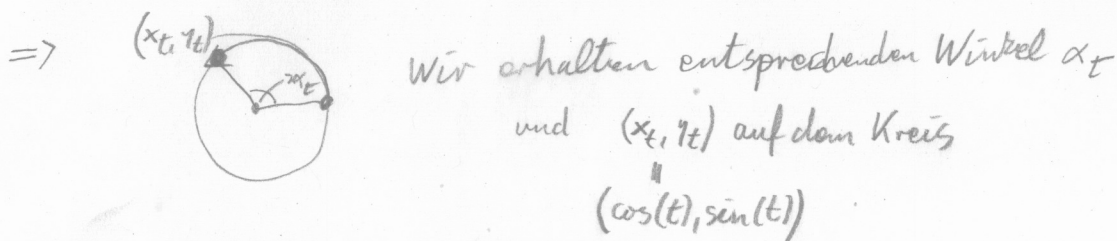 => (x_t, y_t) α_t Wir erhalten entsprechenden Winkel α_t
und (x_t, y_t) auf dem Kreis
=
(cos(t), sin(t))